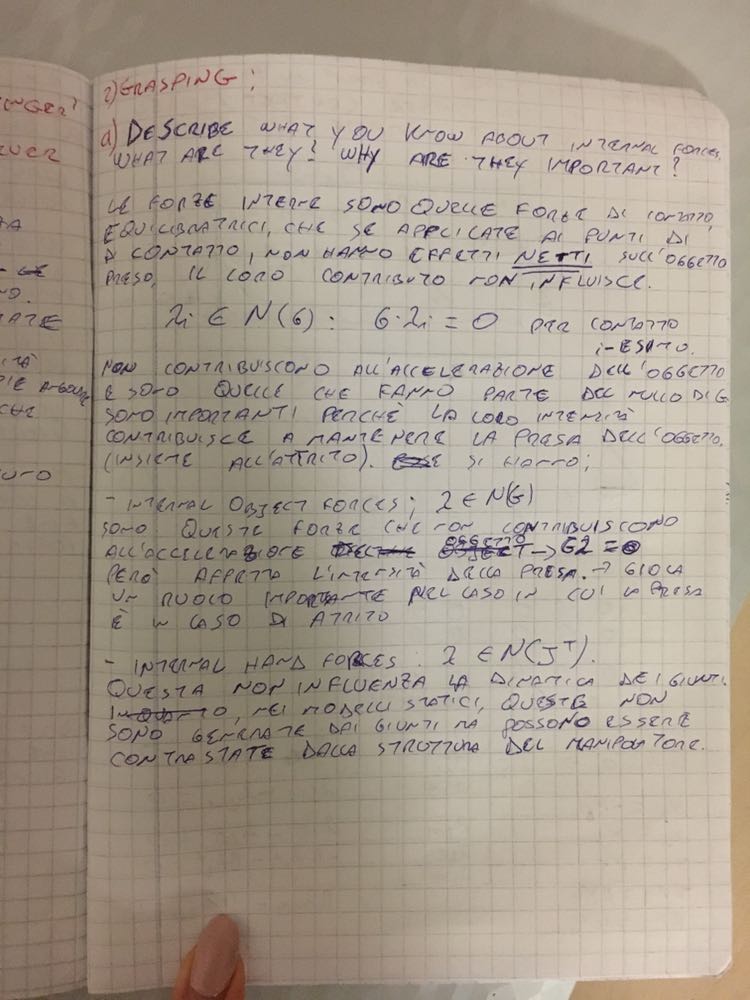 INGER?
EVER
TA
NO.
ZATE
ITÀ
PIE ANGOLARE
CHE
URO
2) GRASPING:
a) DESCRIBE WHAT YOU KNOW ABOUT INTERNAL FORCES.
WHAT ARE THEY? WHY ARE THEY IMPORTANT?
LE FORZE INTERNE SONO QUELLE FORZE DI CONTATTO
EQUILIBRATRICI, CHE SE APPLICATE AI PUNTI DI
DI CONTATTO, NON HANNO EFFETTI NETTI SULL'OGGETTO
PRESO, IL LORO CONTRIBUTO NON INFLUISCE.
λi ∈ N(G) : G·λi = 0 PER CONTATTO
i-ESIMO.
NON CONTRIBUISCONO ALL'ACCELERAZIONE DELL'OGGETTO
E SONO QUELLE CHE FANNO PARTE DEL NULLO DI G
SONO IMPORTANTI PERCHÈ LA LORO INTENSITÀ
CONTRIBUISCE A MANTENERE LA PRESA DELL'OGGETTO.
(INSIEME ALL'ATTRITO). SI HANNO;
- INTERNAL OBJECT FORCES; λ ∈ N(G)
SONO QUESTE FORZE CHE NON CONTRIBUISCONO
ALL'ACCELERAZIONE OGGETTO → Gλ = 0
PERÒ AFFETTA L'INTENSITÀ DELLA PRESA. → GIOCA
UN RUOLO IMPORTANTE NEL CASO IN CUI LA PRESA
È IN CASO DI ATRITO
- INTERNAL HAND FORCES : λ ∈ N(Jᵀ).
QUESTA NON INFLUENZA LA DINAMICA DEI GIUNTI.
NEI MODELLI STATICI, QUESTE NON
SONO GENERATE DAI GIUNTI MA POSSONO ESSERE
CONTRASTATE DALLA STRUTTURA DEL MANIPOLATORE.